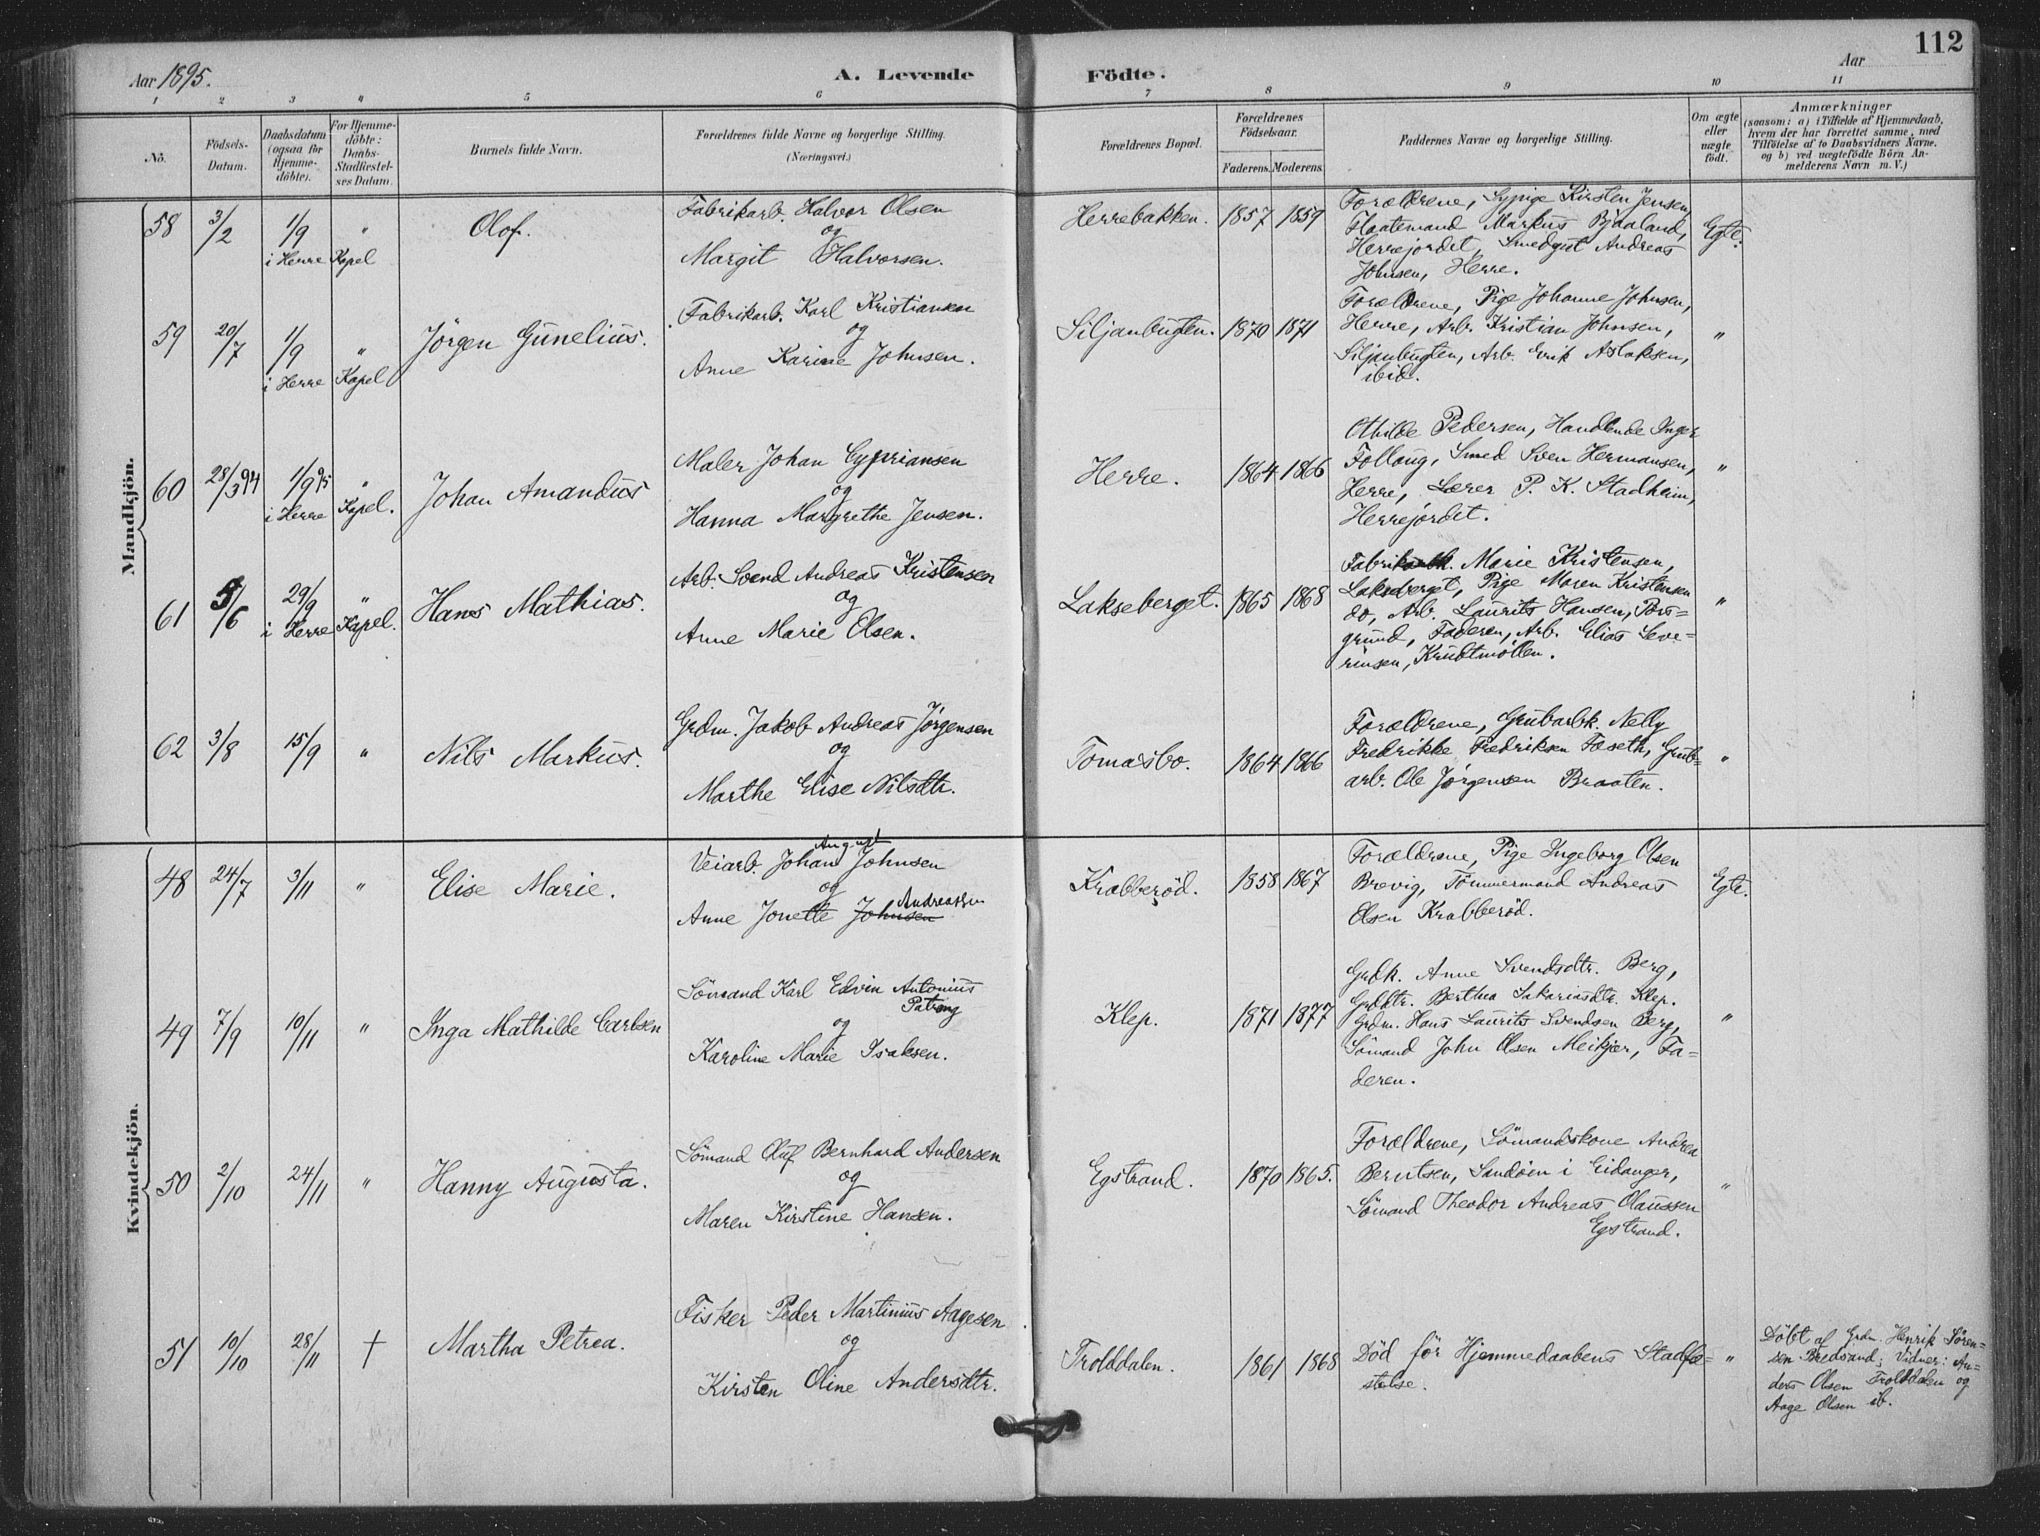 112
Aar 1895.
A. Levende
Födte.
Aar
1 2 3 " 5 6 7 8 9 10 11
No.
Födsels-
Datum.
Daabsdatum
(ogsaa for
Hjemme-
döbte).
For Hjemme-
döbte:
Daabs-
Stadfæstel-
ses Datum.
Barnets fulde Navn.
Forældrenes fulde Navne og borgerlige Stilling.
(Næringsvei.)
Forældrenes Bopæl.
Forældrenes
Födselsaar.
Faderens. Moderens.
Faddernes Navne og borgerlige Stilling.
Om ægte
eller
uægte
födt.
Anmærkninger
(saasom: a) i Tilfælde af Hjemmedaab,
hvem der har forrettet samme, med
Tilföielse af to Daabsvidners Navne.
og b) ved uægtefödte Börn An-
melderens Navn m. V.)
Mandkjön.
58 3/2 1/9 "
i Herre Kapel
Olof.
Fabrikarb. Halvor Olsen
og
Margit Halvorsen.
Herrebakken. 1857 1859
Forældrene, Sypige Kirsten Jensen,
Flaatemand Markus Bjaaland,
Herrejordet, Smedgut Andreas
Johnsen, Herre.
Egte.
59 20/7 1/9 "
i Herre Kapel
Jörgen Gunelius.
Fabrikarb. Karl Kristiansen
og
Anne Karine Johnsen.
Siljanbugten. 1870 1871
Forældrene, Pige Johanne Johnsen,
Herre, Arb. Kristian Johnsen,
Siljanbugten, Arb. Erik Aslaksen,
ibid.
"
60 28/3 94 1/9 95 "
i Herre Kapel.
Johan Amandus
Maler Johan Cypriansen
og
Hanna Margrethe Jensen.
Herre. 1864 1866
Othilde Pedersen, Handlende Inger
Follaug, Smed Sven Hermansen,
Herre, Lærer P. K. Stadheim,
Herrejordet.
"
61 5/6 29/9 "
i Herre Kapel.
Hans Mathias.
Arb. Svend Andreas Kristensen
og
Anne Marie Olsen.
Lakseberget. 1865 1868
Fabrikarbk. Marie Kristensen,
Lakseberget, Pige Maren Kristensen
do, Arb. Laurits Hansen, Pors-
grund, Faderen, Arb. Elias Seve-
rinsen, Krudtmöllen.
"
62 3/8 15/9 "
Nils Markus.
Grdm. Jakob Andreas Jörgensen
og
Marthe Elise Nilsdtr.
Tomasbo. 1864 1866
Forældrene, Grubarbk. Nelly
Fredrikke Fredriksen Fæseth, Grub-
arb. Ole Jörgensen Braaten.
"
Kvindekjön.
48 24/7 3/11 "
Elise Marie.
August
Veiarb. Johan Johnsen
og
Andreassen
Anne Jonette Johnsen
Krabberöd. 1858 1867
Forældrene, Pige Ingeborg Olsen
Brevig, Tömmermand Andreas
Olsen Krabberöd.
Egte.
49 7/9 10/11 "
Inga Mathilde Carlsen
Sömand Karl Edvin Antonius
og
Karoline Marie Isaksen.
Klep. 1871 1877
Grdk. Anne Svendsdtr. Berg,
Grddtr. Berthea Sakariasdtr. Klep.
Grdm. Hans Laurits Svendsen Berg,
Sömand John Olsen Meikjær, Fa-
deren.
"
50 2/10 24/11 "
Hanny Augusta.
Sömand Oluf Bernhard Andersen
og
Maren Kirstine Hansen.
Egstrand. 1870 1865.
Forældrene, Sömandskone Andrea
Berntsen, Sandöen i Eidanger,
Sömand Theodor Andreas Olaussen
Egstrand.
"
51 10/10 28/11 †
Martha Petrea.
Fisker Peder Martinius Aagesen
og
Kirsten Oline Andersdtr.
Trolddalen. 1861 1868
Död för Hjemmedaabens Stadfæ-
stelse.
"
Döbt af Grdm. Henrik Sören-
sen Bredsand; Vidner: An-
ders Olsen Trolddalen og
Aage Olsen ib.